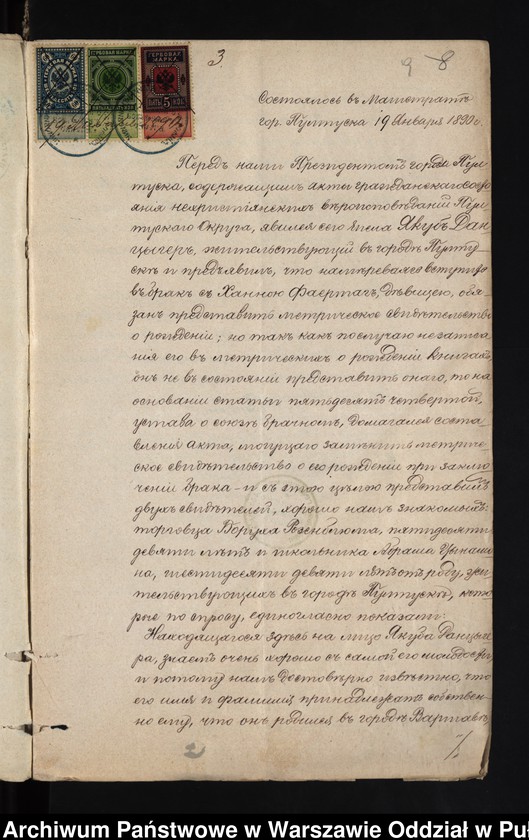 3.
9 8
Состоялось въ Магистратѣ
гор. Пултуска 19 Января 1890 г.
Передъ нами Президентомъ города Пул-
туска, содержащимъ акты гражданскаго состо-
янія нехристіанскихъ вѣроисповѣданій Пул-
тускаго Округа, явился сего числа Якубъ Дан-
цыгеръ, жительствующій въ городѣ Пулту-
скѣ и предъявилъ, что намѣреваясь вступить
въ бракъ съ Ханною Фаертагъ, дѣвицею, обя-
занъ представить метрическое свидѣтельство
о рожденіи; но такъ какъ по случаю незаписа-
нія его въ метрическихъ о рожденіи книгахъ,
онъ не въ состояніи представить онаго, то на
основаніи статьи пятьдесятъ четвертой,
устава о союзѣ брачномъ, домагался соста-
вленія акта, могущаго замѣнить метриче-
ское свидѣтельство о его рожденіи при заклю-
ченіи брака – и съ этою цѣлью представилъ
двухъ свидѣтелей, хорошо намъ знакомыхъ:
торговца Боруха Розенблюма, пятидесяти
девяти лѣтъ и школьника Абрама
на, шестидесяти девяти лѣтъ отъ роду, жи-
тельствующихъ въ городѣ Пултускѣ, кото-
рые по спросу, единогласно показали:
Находящагося здѣсь на лицо Якуба Данцыге-
ра, знаемъ очень хорошо съ самой его молодости,
и потому намъ достовѣрно извѣстно, что
его имя и фамилія принадлежатъ собствен-
но ему, что онъ родился въ городѣ Варшавѣ,
2
Archiwum Państwowe w Warszawie Oddział w Pu